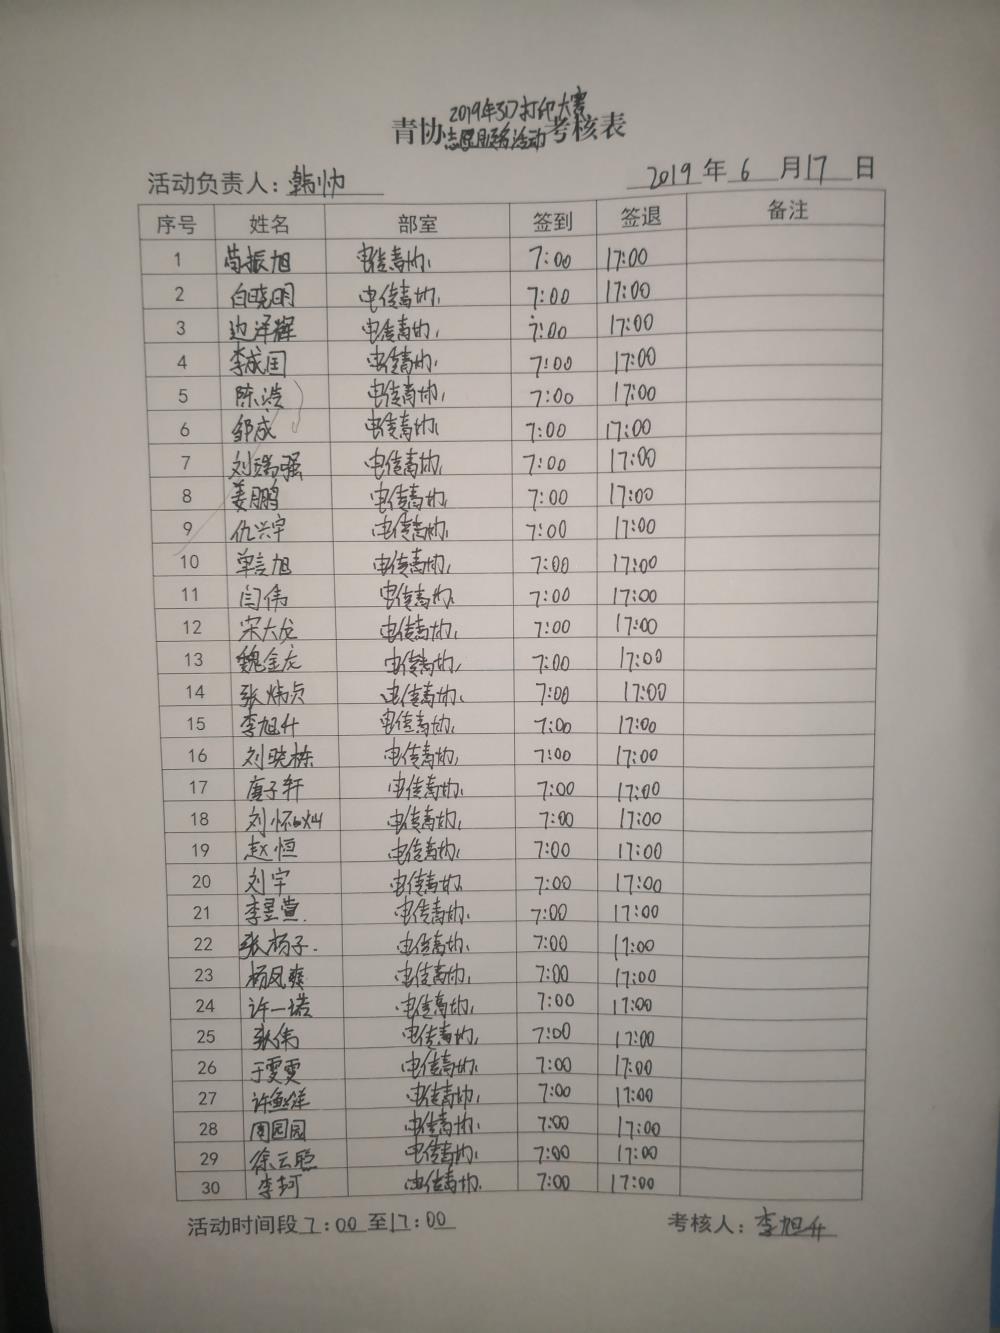 2019年3D打印大赛
青协志愿服务活动考核表
活动负责人：韩帅 2019年6月17日
序号 姓名 部室 签到 签退 备注
1 苟振旭 电信青协 7:00 17:00
2 白晓明 电信青协 7:00 17:00
3 边泽辉 电信青协 7:00 17:00
4 李成国 电信青协 7:00 17:00
5 陈浩 电信青协 7:00 17:00
6 邹成 电信青协 7:00 17:00
7 刘瑞强 电信青协 7:00 17:00
8 姜鹏 电信青协 7:00 17:00
9 仇兴宇 电信青协 7:00 17:00
10 单言旭 电信青协 7:00 17:00
11 闫伟 电信青协 7:00 17:00
12 宋大龙 电信青协 7:00 17:00
13 魏金龙 电信青协 7:00 17:00
14 张炜贞 电信青协 7:00 17:00
15 李旭升 电信青协 7:00 17:00
16 刘晓栋 电信青协 7:00 17:00
17 唐子轩 电信青协 7:00 17:00
18 刘怀灿 电信青协 7:00 17:00
19 赵恒 电信青协 7:00 17:00
20 刘宇 电信青协 7:00 17:00
21 李昱萱 电信青协 7:00 17:00
22 张杨子 电信青协 7:00 17:00
23 杨凤爽 电信青协 7:00 17:00
24 许一诺 电信青协 7:00 17:00
25 张伟 电信青协 7:00 17:00
26 于雯雯 电信青协 7:00 17:00
27 电信青协 7:00 17:00
28 周园园 电信青协 7:00 17:00
29 徐云聪 电信青协 7:00 17:00
30 李珂 电信青协 7:00 17:00
活动时间段7:00至17:00 考核人：李旭升